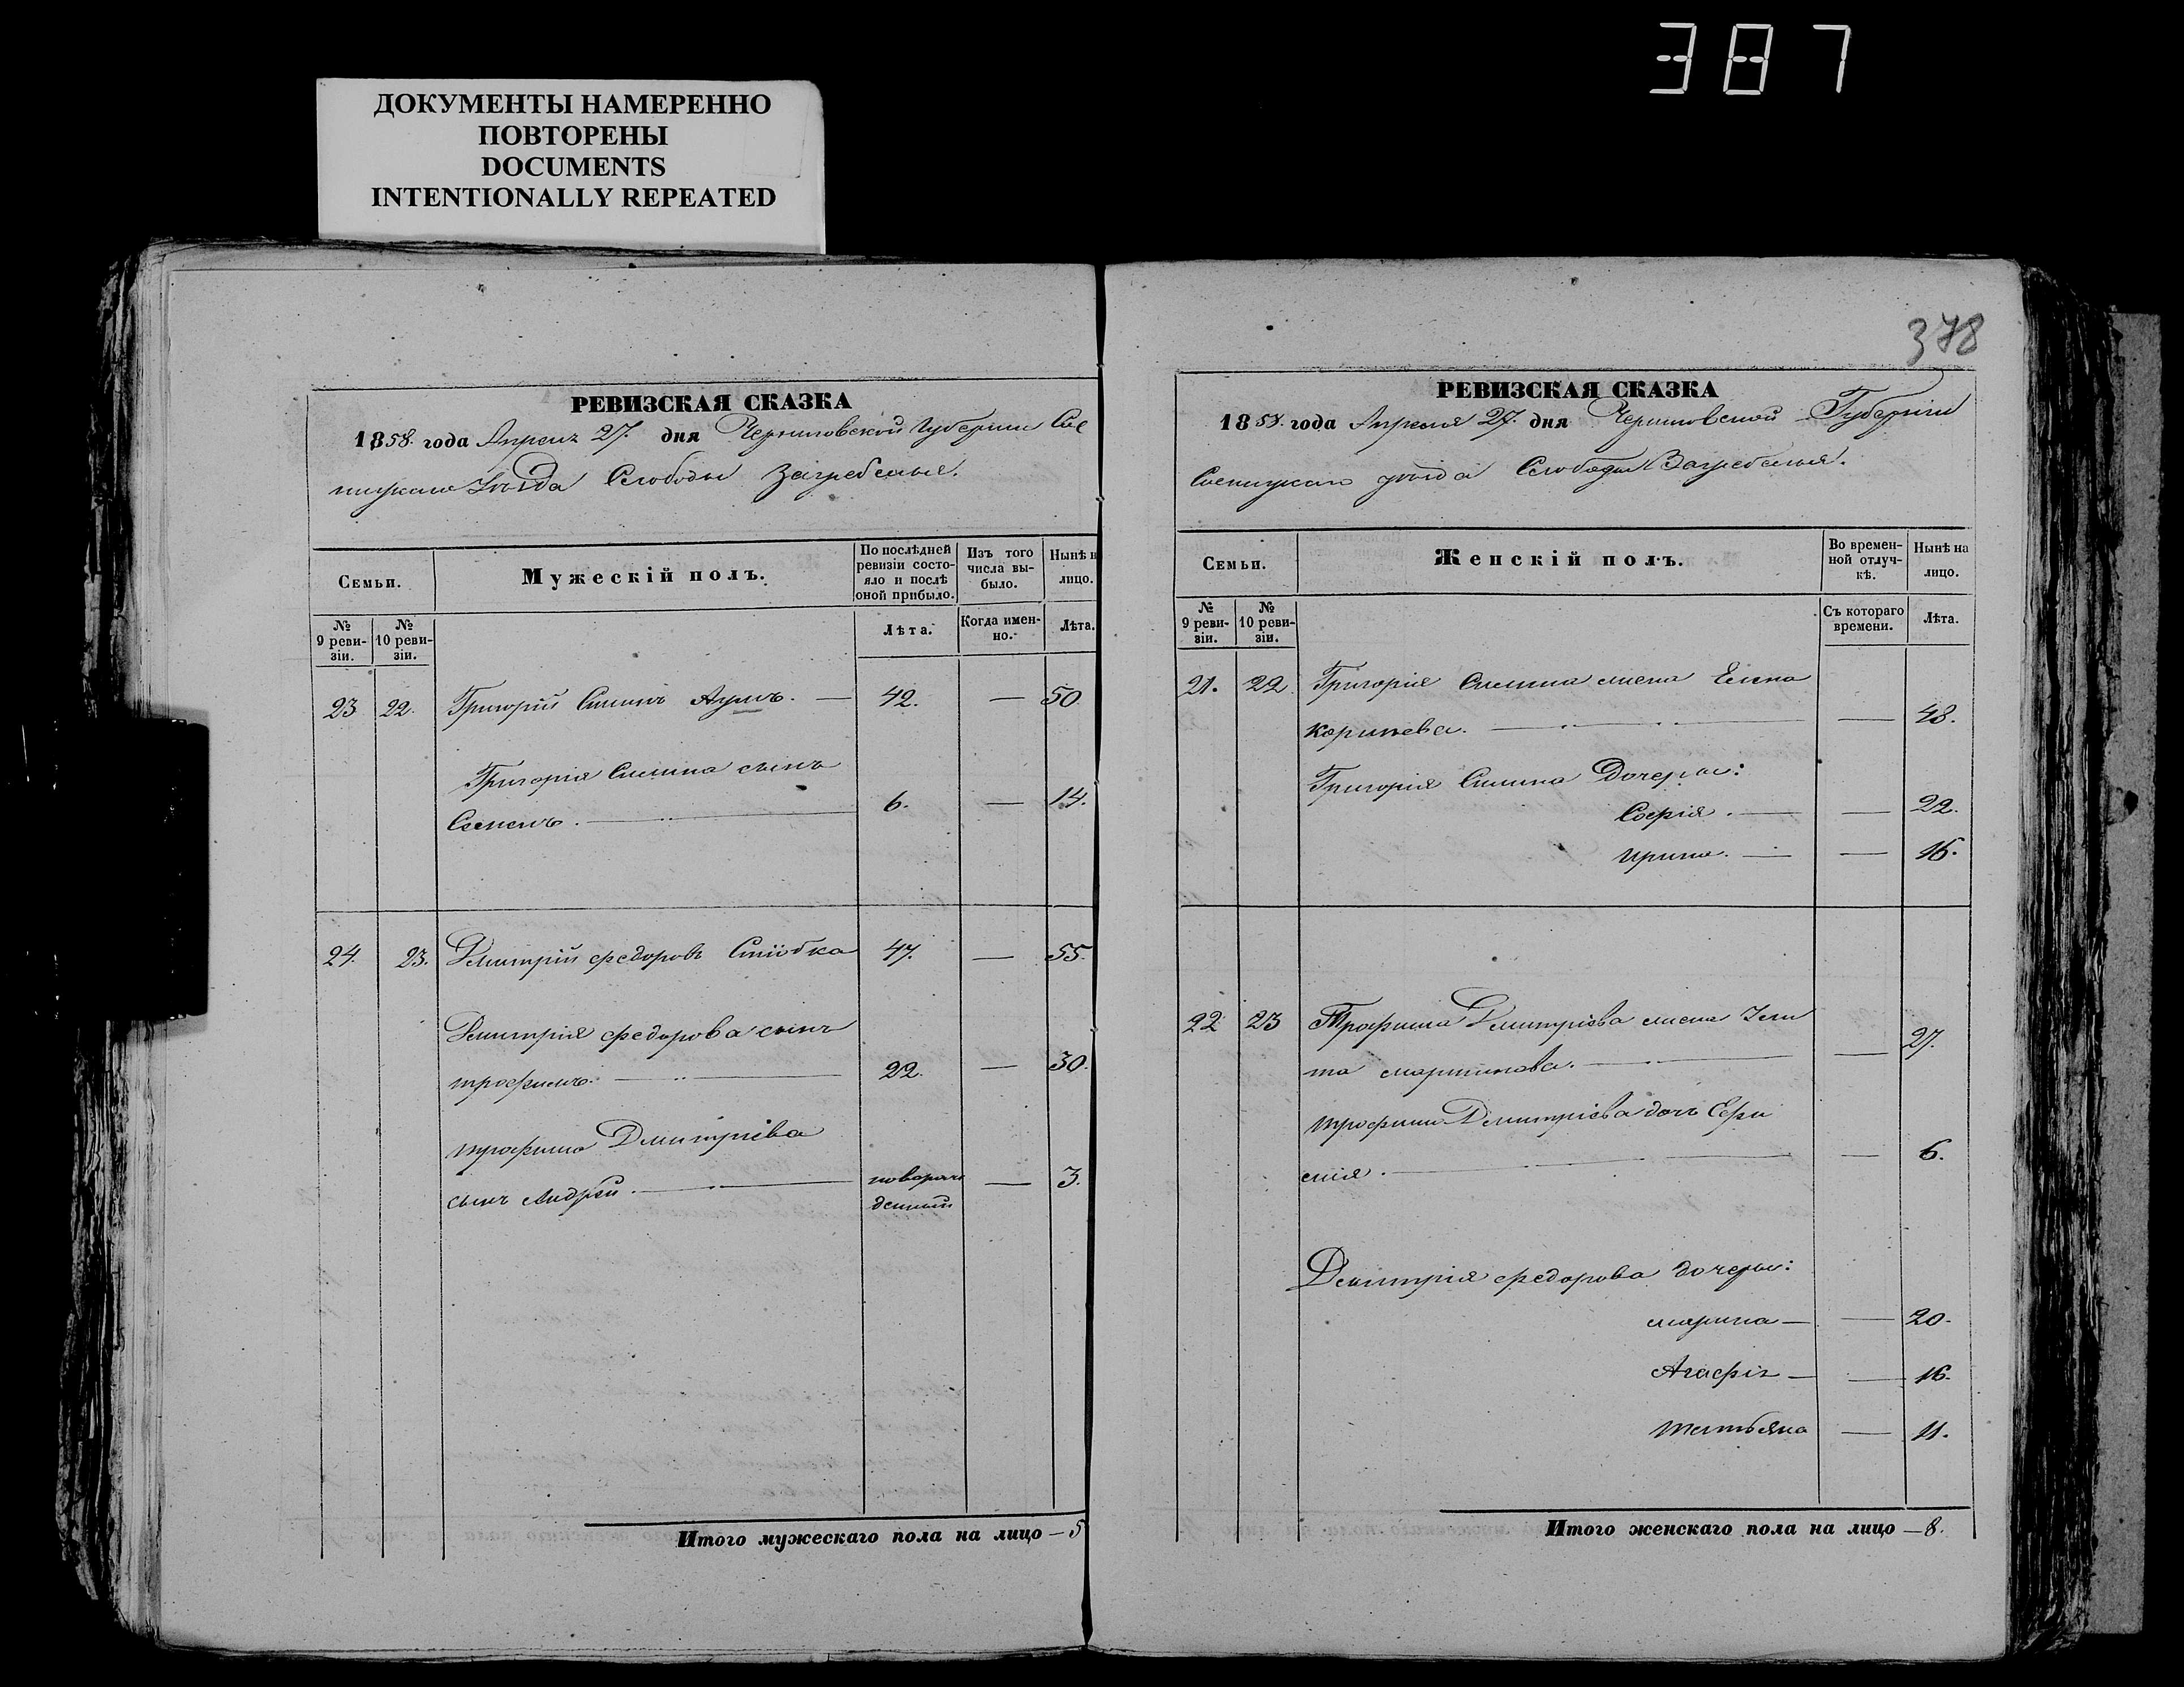 387
ДОКУМЕНТЫ НАМЕРЕННО
ПОВТОРЕНЫ
DOCUMENTS
INTENTIONALLY REPEATED
РЕВИЗСКАЯ СКАЗКА
1858. года Апреля 27. дня Черниговской Губернии Сос
ницкаго Уѣзда Слободы Загребелья.
Семьи.
Мужескій полъ.
По послѣдней ревизіи состояло и послѣ оной прибыло.
Изъ того числа выбыло.
Нынѣ н лицо.
№ 9 ревизіи.
№ 10 ревизіи.
Лѣта.
Когда именно.
Лѣта.
23 22. Григорій Силинъ — 42. — 50
Григорія Силина сынъ
Семенъ. — 6. — 14.
24. 23. Димитрій Федоровъ 47. — 55.
Димитрія Федорова сынъ
трофимъ. — 22. — 30.
трофима Дмитріева
сынъ Андрей. — новорож
денный — 3.
Итого мужескаго пола на лицо — 5
378
РЕВИЗСКАЯ СКАЗКА
1858. года Апреля 27. дня Черниговской Губерніи
Сосницкаго уѣзда Слободы Загребелья.
Семьи.
Женскій полъ.
Во временной отлучкѣ.
Нынѣ на лицо.
№ 9 ревизіи.
№ 10 ревизіи.
Съ котораго времени.
Лѣта.
21. 22. Григорія Силина жена Елена
корнѣева. — — 48.
Григорія Силина Дочери:
Софія. — — 22.
ирина. — — 16.
22. 23 Трофима Дмитріева жена Ули
та мартинова. — — 27.
трофима Дмитріева дочь Ефи
мія. — — 6.
Димитрія федорова дочери:
марина — — 20.
Агафія — — 16.
татьяна — 11.
Итого женскаго пола на лицо — 8.